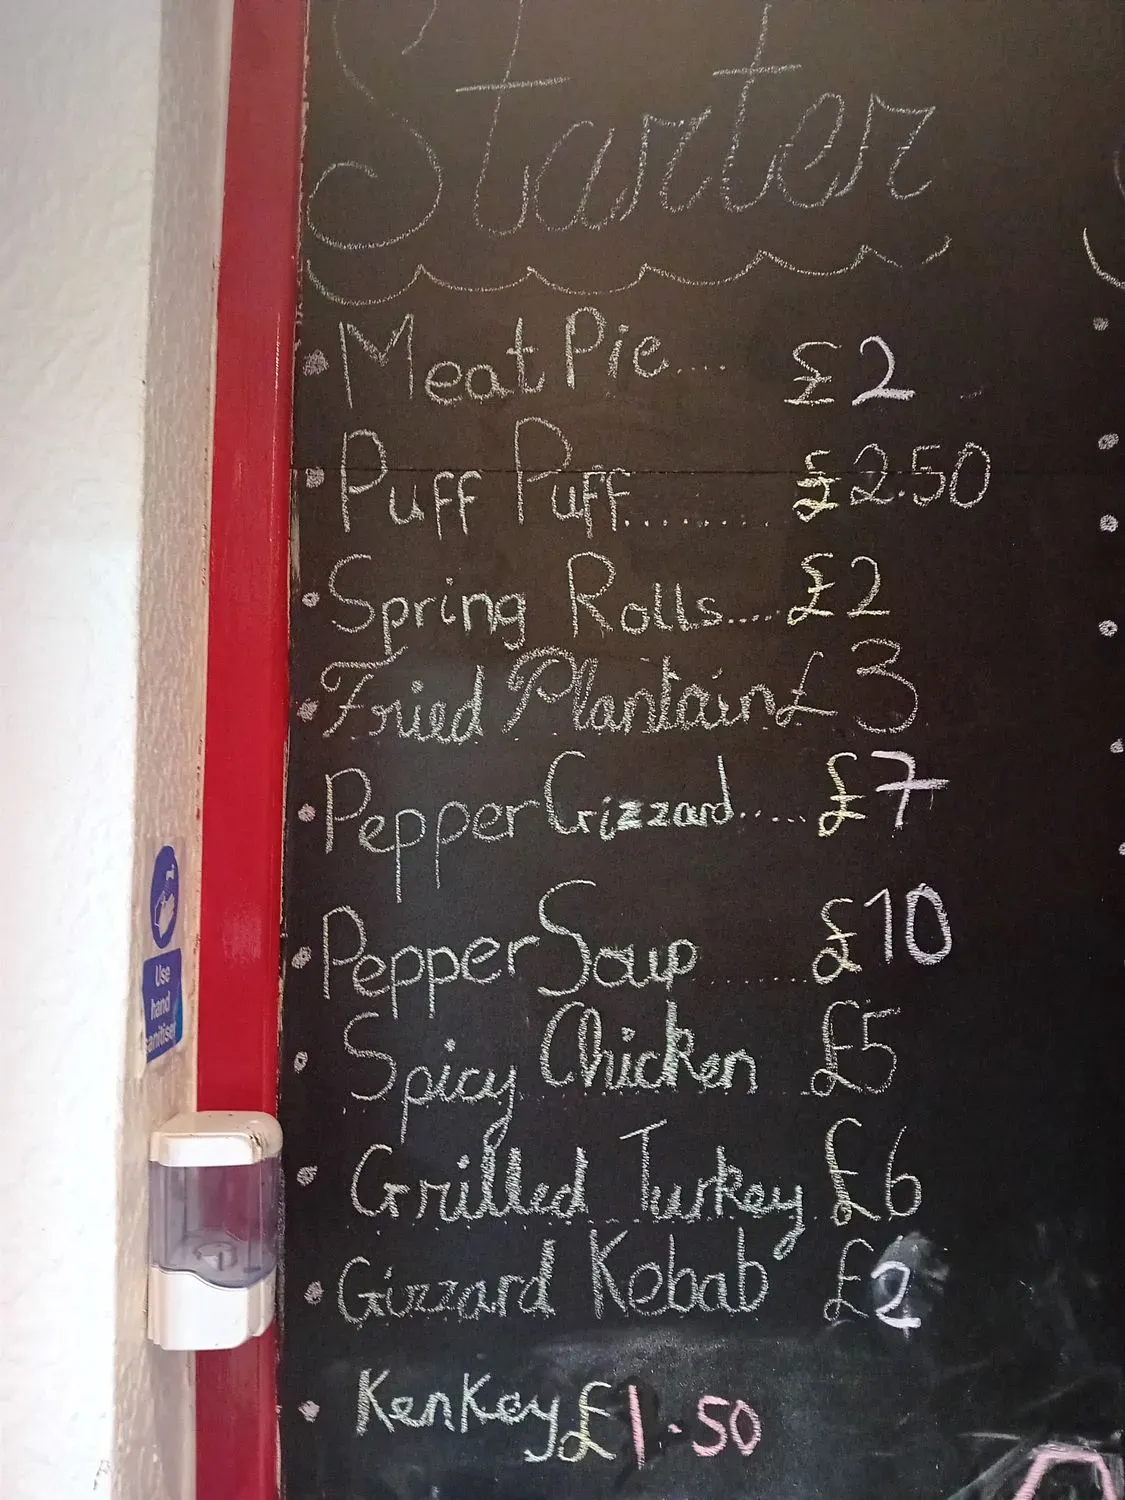 Starter
• Meat Pie.... £2
• Puff Puff......... £2.50
• Spring Rolls.... £2
• Fried Plantain £3
• Pepper Gizzard..... £7
• Pepper Soup ....... £10
• Spicy Chicken £5
• Grilled Turkey £6
• Gizzard Kebab £2
• Kenkey £1.50
Use
hand
sanitiser